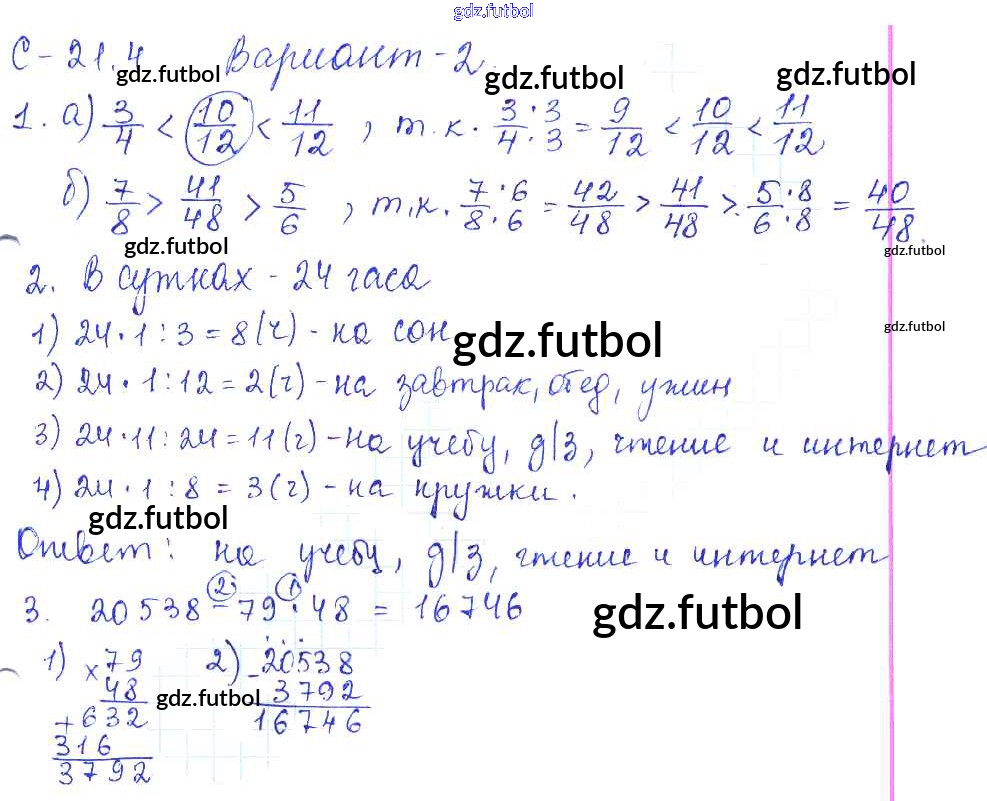 gdz.futbol
С-21.4 Вариант-2
gdz.futbol gdz.futbol gdz.futbol
1. а) 3/4 < 10/12 < 11/12, т.к. 3·3/4·3 = 9/12 < 10/12 < 11/12
б) 7/8 > 41/48 > 5/6, т.к. 7·6/8·6 = 42/48 > 41/48 > 5·8/6·8 = 40/48
gdz.futbol gdz.futbol
2. В сутках - 24 часа
1) 24·1:3=8(ч) - на сон
gdz.futbol gdz.futbol
2) 24·1:12=2(ч) - на завтрак, обед, ужин
3) 24·11:24=11(ч) - на учебу, д/з, чтение и интернет
4) 24·1:8=3(ч) - на кружки.
gdz.futbol
Ответ: на учебу, д/з, чтение и интернет
2 1
3. 20538-79·48=16746
gdz.futbol
1) ×79 2) -20538
48 3792
gdz.futbol
+632 16746
316
3792